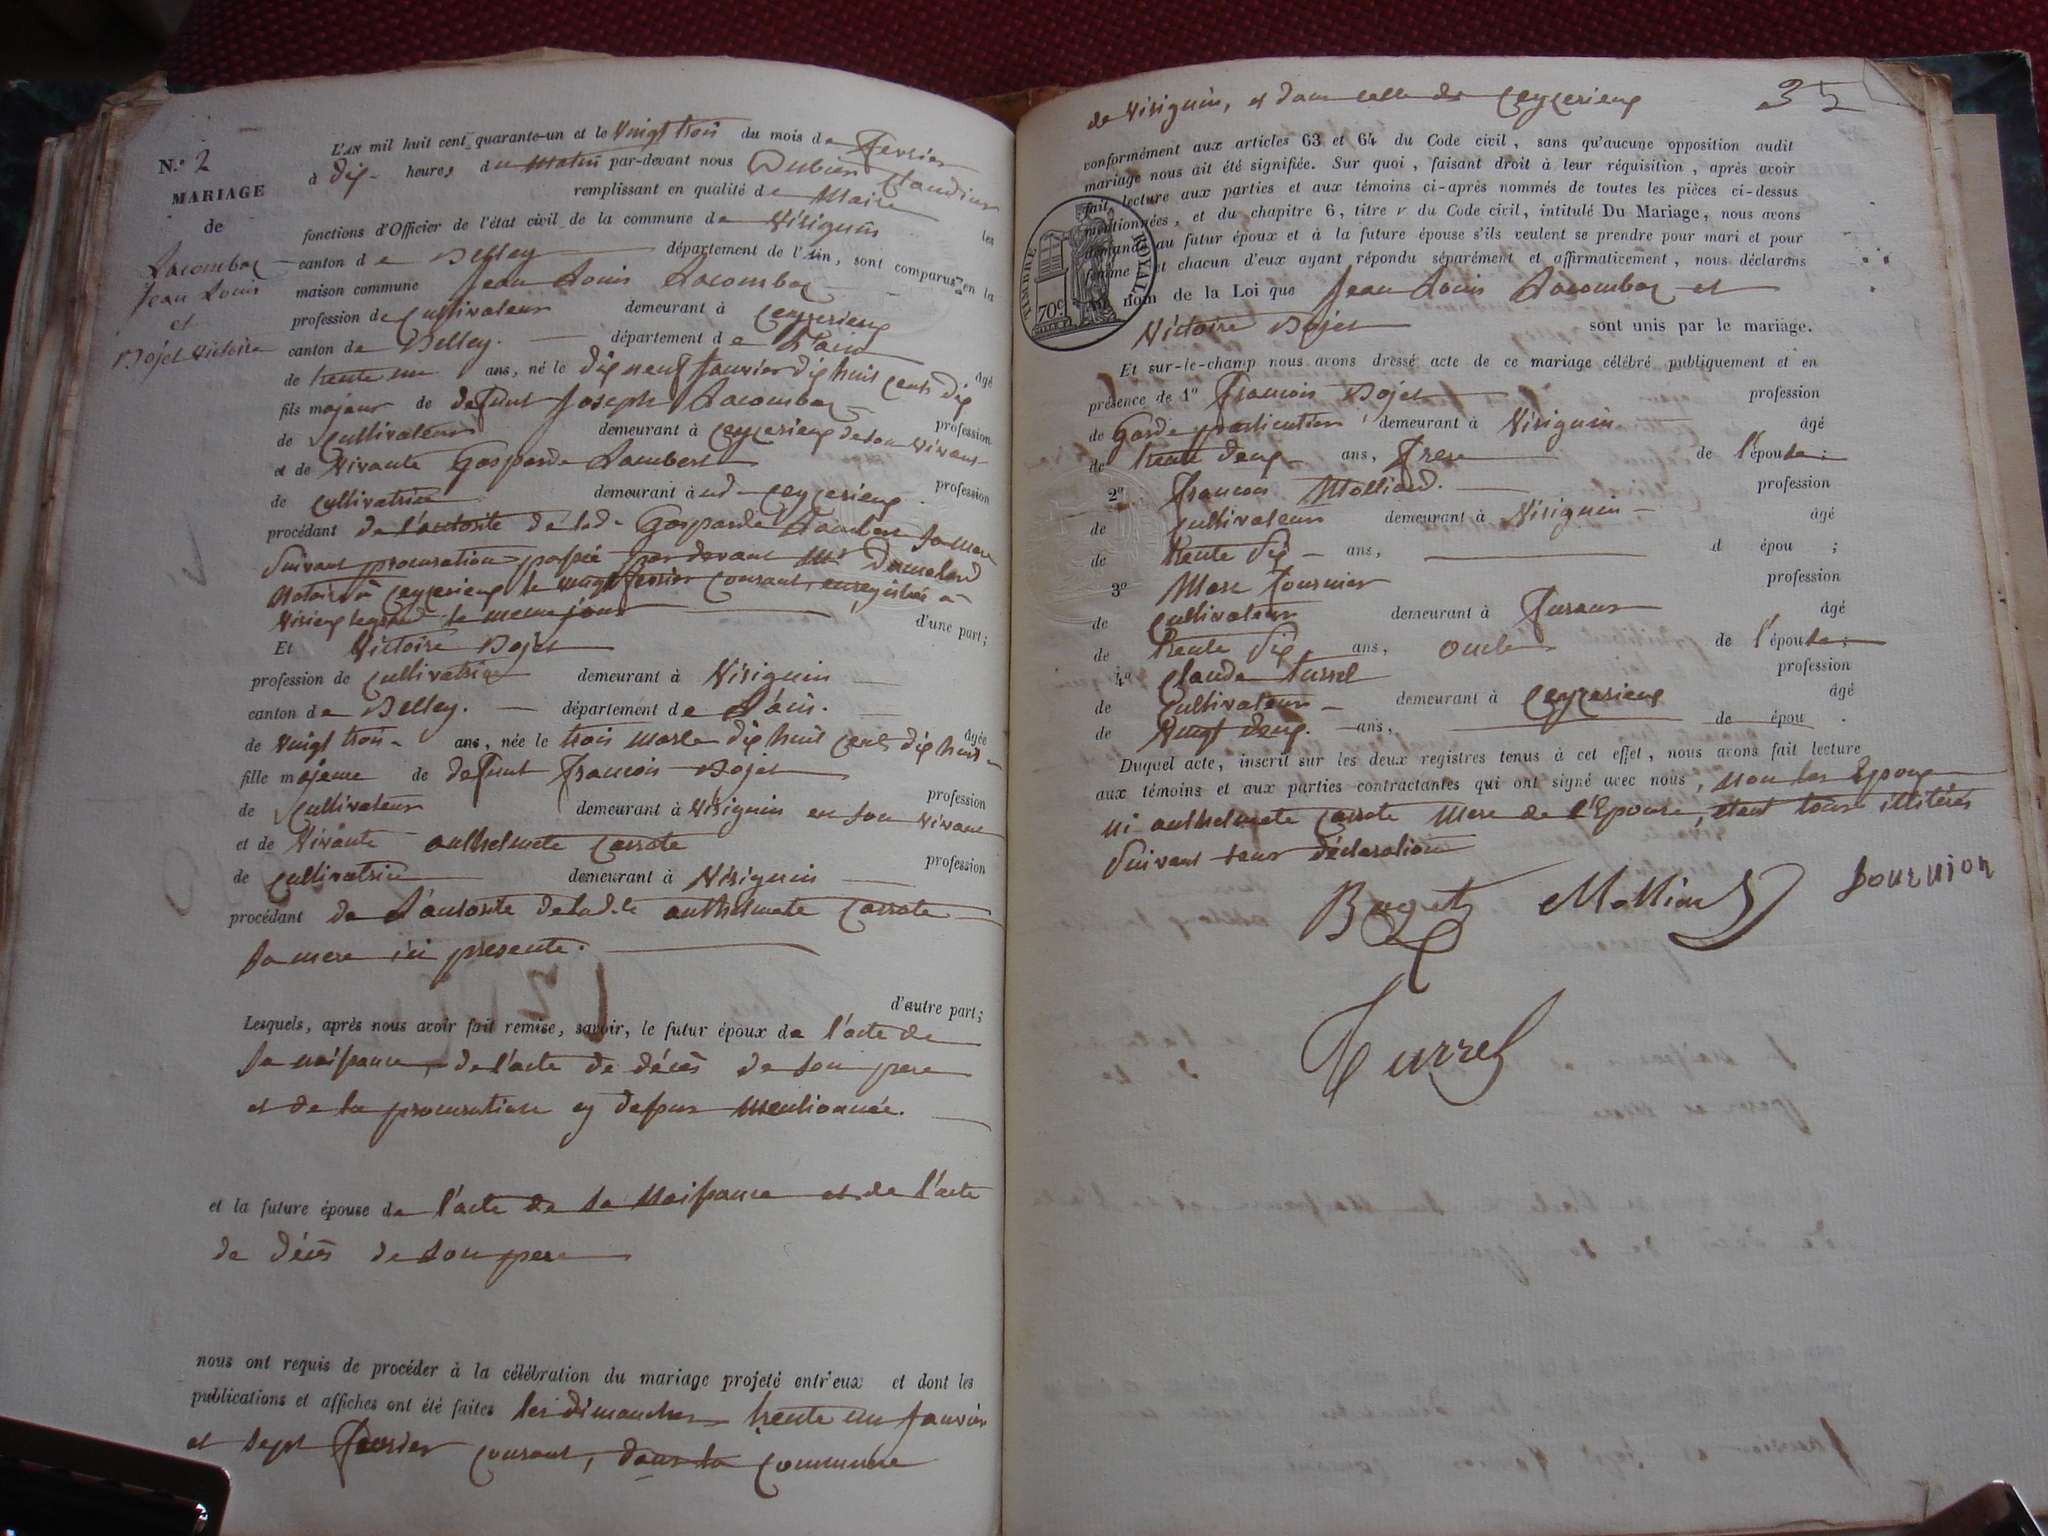 N.º 2
MARIAGE
de
Lacombaz
Jean Louis
et
Bojet Victoire
L'AN mil huit cent quarante-un et le vingt trois du mois de fevrier
à dix heures du matin par-devant nous Dubien Claudius
remplissant en qualité de Maire les
fonctions d'Officier de l'état civil de la commune de Virignin
canton de Belley département de l'Ain, sont comparus en la
maison commune Jean Louis Lacombaz
profession de Cultivateur demeurant à Ceyzerieux
canton de Belley. département de L'ain âgé
de trente un ans, né le dix neuf Janvier dix huit cents dix
fils majeur de defunt Joseph Lacombaz profession
de Cultivateur demeurant à Ceyzerieux de son vivant
et de vivante Gasparde Lambert profession
de Cultivatrice demeurant à ud. Ceyzerieux.
procédant de l'autorité de lad. Gasparde Lambert sa mere
suivant procuration passée par devant Mr
Notaire à Ceyzerieux le vingt fevrier courant, enregistrée à
Virieux legrand le meme jour d'une part;
Et Victoire Bojet
profession de Cultivatrice demeurant à Virignin
canton de Belley. département de L'ain. âgée
de vingt trois ans, née le trois mars dix huit cents dix huit
fille majeure de defunt francois Bojet profession
de Cultivateur demeurant à Virignin en son vivant
et de vivante anthelmete Carrote profession
de Cultivatrice demeurant à Virignin
procédant de L'autorité de lad.te anthelmete Carrote
sa mere ici presente. d'autre part;
Lesquels, après nous avoir fait remise, savoir, le futur époux de l'acte de
sa naissance, de l'acte de décès de son pere
et de la procuration cy dessus mentionnée.
et la future épouse de l'acte de sa Naissance et de l'acte
de décès de son pere
nous ont requis de procéder à la célébration du mariage projeté entr'eux et dont les
publications et affiches ont été faites les dimanches trente un Janvier
et sept fevrier courant, dans la commune
35
de Virignin, et dans celle de Ceyzerieux
conformément aux articles 63 et 64 du Code civil, sans qu'aucune opposition audit
mariage nous ait été signifiée. Sur quoi, faisant droit à leur réquisition, après avoir
fait lecture aux parties et aux témoins ci-après nommés de toutes les pièces ci-dessus
mentionnées, et du chapitre 6, titre v du Code civil, intitulé Du Mariage, nous avons
demandé au futur époux et à la future épouse s'ils veulent se prendre pour mari et pour
femme et chacun d'eux ayant répondu séparément et affirmativement, nous déclarons
au nom de la Loi que Jean Louis Lacombaz et
Victoire Bojet sont unis par le mariage.
TIMBRE ROYAL
70c
Et sur-le-champ nous avons dressé acte de ce mariage célébré publiquement et en
présence de 1º francois Bojet profession
de Garde particulier demeurant à Virignin âgé
de trente deux ans, frere de l'épouse;
2º francois Molliard. profession
de Cultivateur demeurant à Virignin âgé
de trente six ans, d épou ;
3º Marc fournier profession
de Cultivateur demeurant à âgé
de trente six ans, oncle de l'épouse;
4º Claude turrel profession
de Cultivateur demeurant à Ceyzerieux âgé
de vingt deux. ans, de épou .
Duquel acte, inscrit sur les deux registres tenus à cet effet, nous avons fait lecture
aux témoins et aux parties contractantes qui ont signé avec nous, non les Epoux
ni anthelmete Carrote Mere de l'Epouse, étant tous illitérés
suivant leur déclaration
Molliard
Turrel